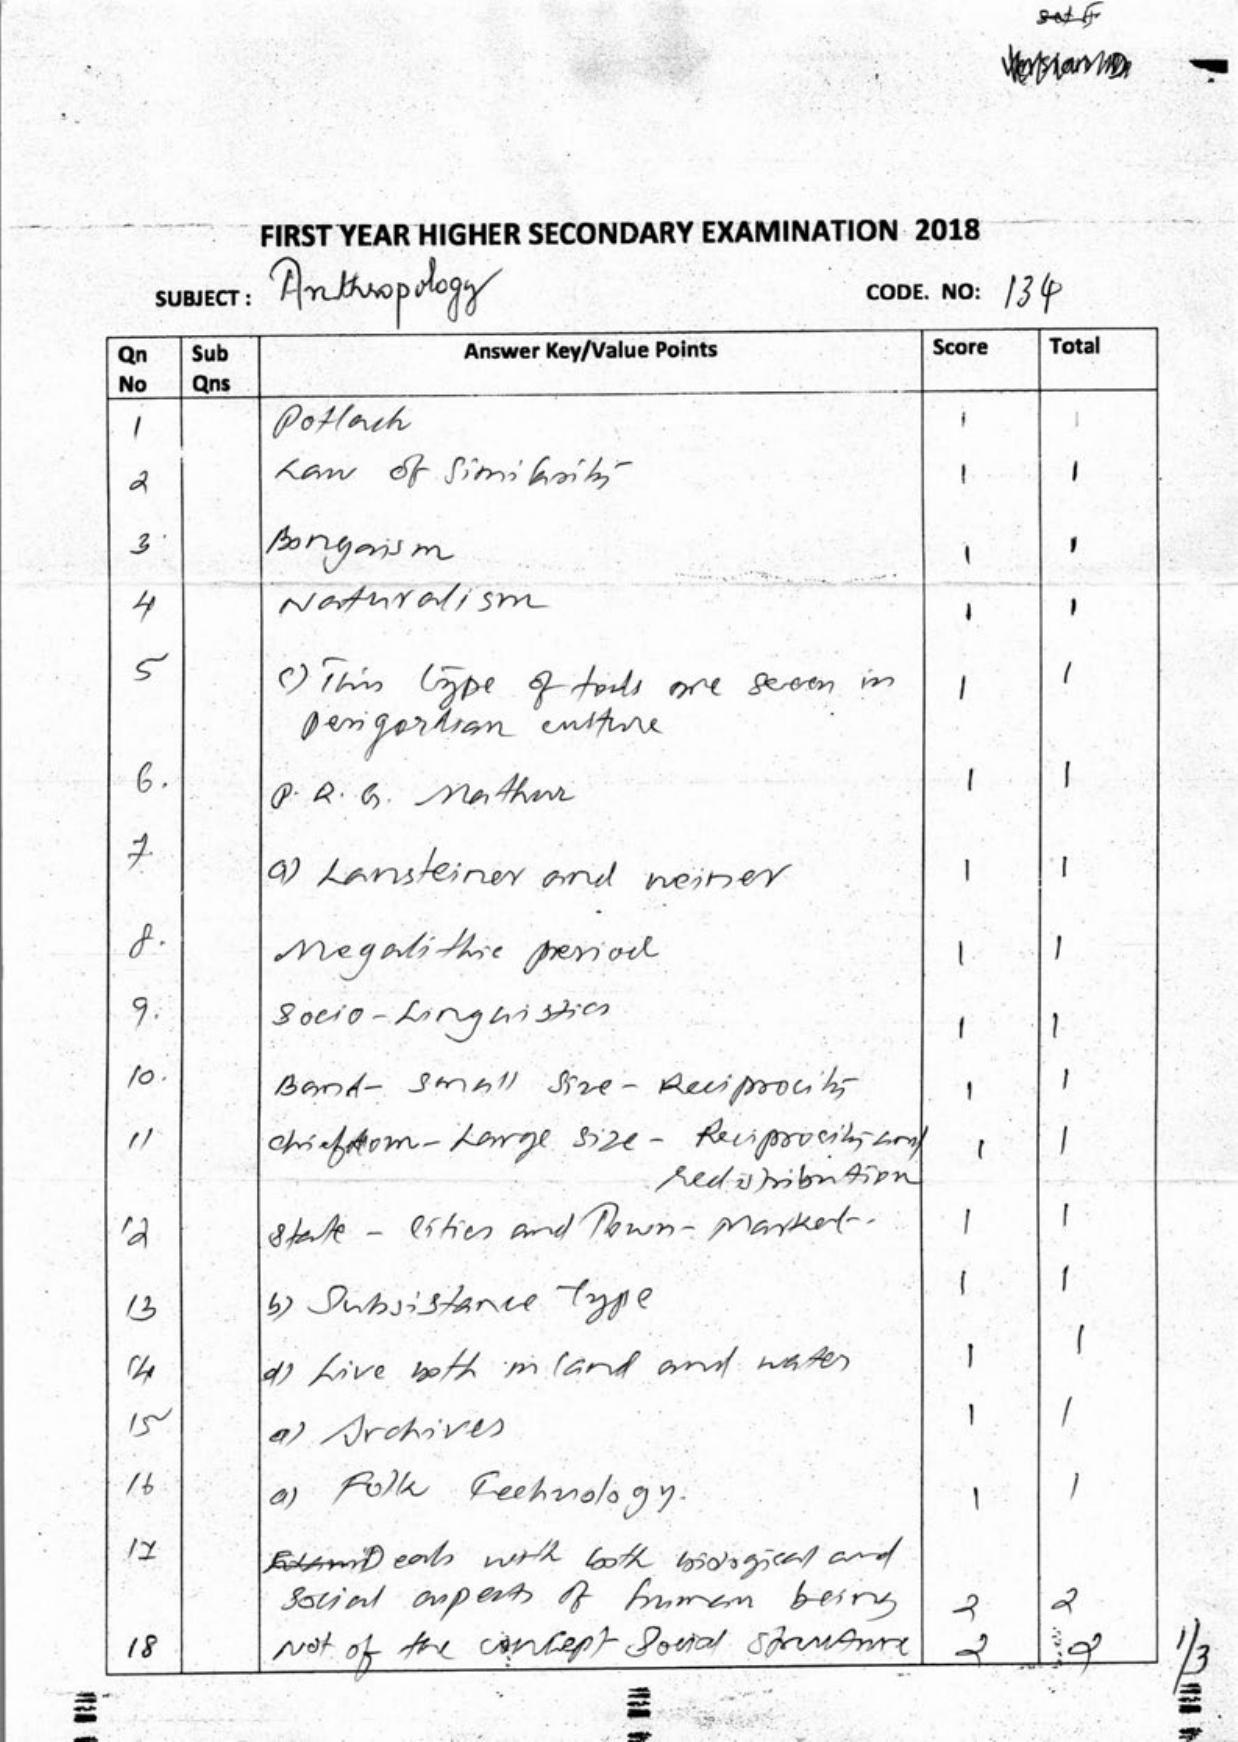 set
FIRST YEAR HIGHER SECONDARY EXAMINATION 2018
SUBJECT : Anthropology CODE. NO: 134
Qn No Sub Qns Answer Key/Value Points Score Total
1 Potlach 1 1
2 Law of Similarity 1 1
3 Bongaism 1 1
4 Naturalism 1 1
5 c) This type of tools are seen in 1 1
Perigordian culture
6. P. R. G. Mathur 1 1
7 a) Lansteiner and weiner 1 1
8. Megalithic period 1 1
9. Socio-Linguistics 1 1
10. Band- Small Size - Reciprocity 1 1
11 Chiefdom - Large size - Reciprocity and 1 1
redistribution
12 State - Cities and Town - Market - . 1 1
13 b) Subsistance Type 1 1
14 d) Live both in land and water 1 1
15 a) Archives 1 1
16 a) Folk Technology. 1 1
17 Deals with both biological and
Social aspects of human being 2 2
18 Not of the concept Social Structure 2 2
1/3